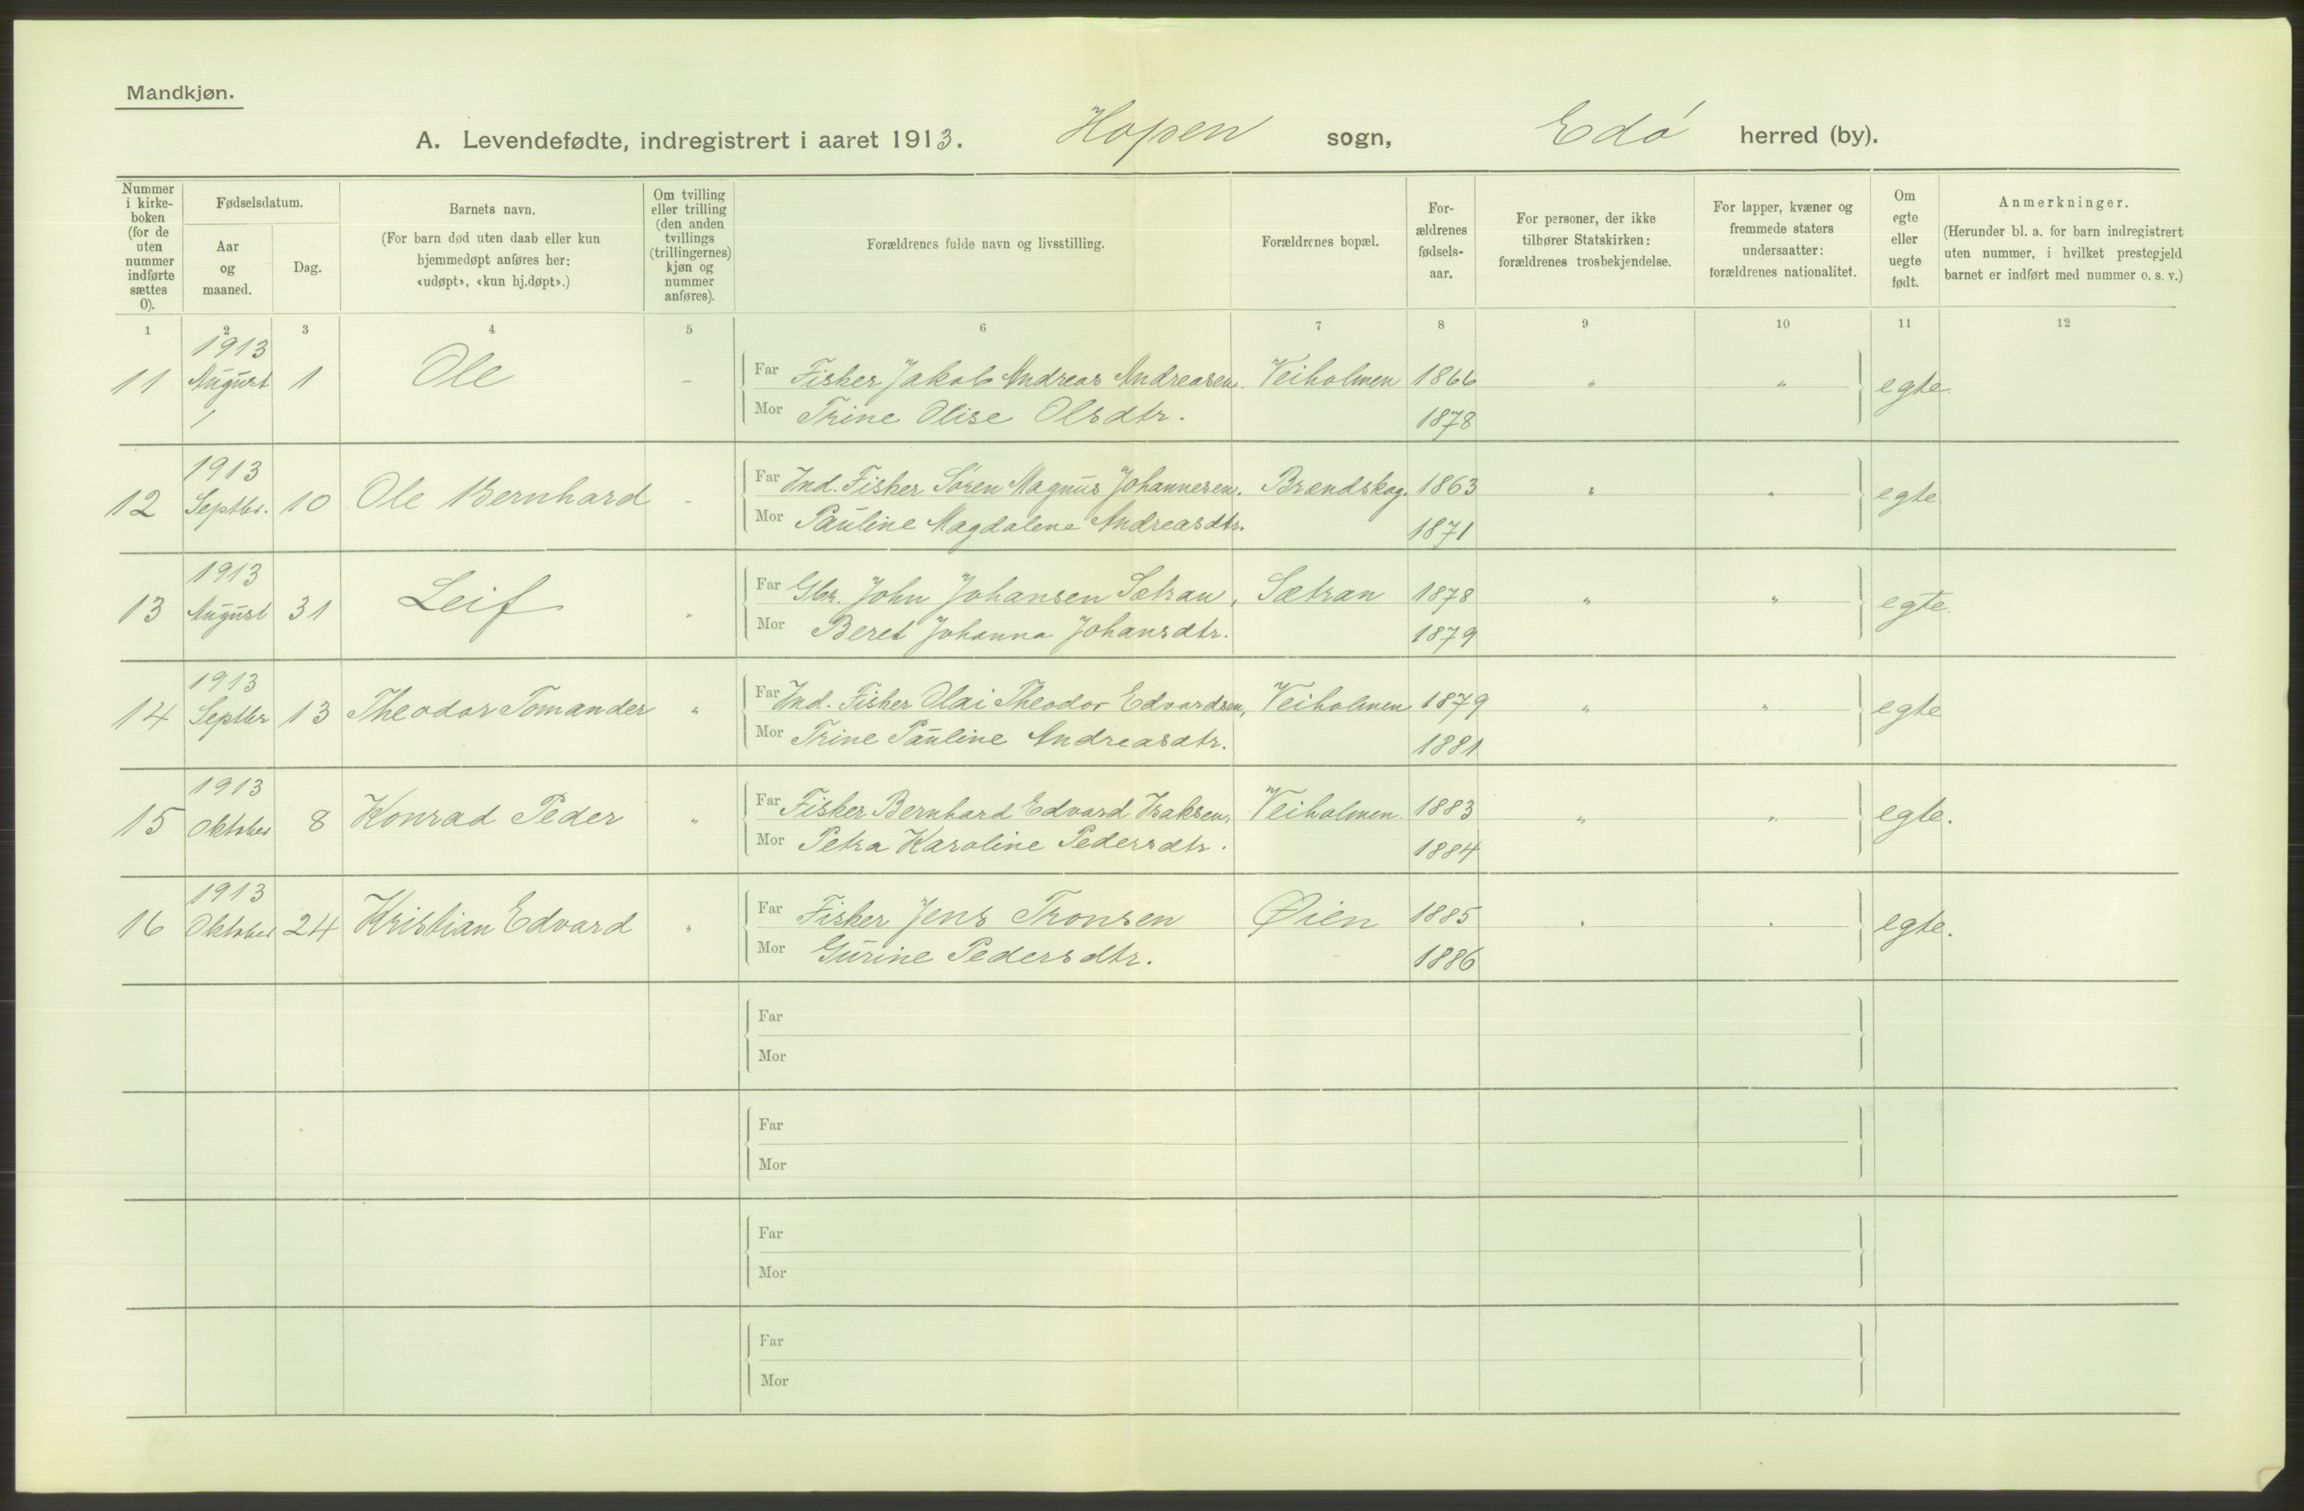 Mandkjøn.
A. Levendefødte, indregistrert i aaret 1913. Hopen sogn, Edö herred (by).
Nummer i kirke- boken (for de uten nummer indførte sættes 0).
Fødselsdatum.
Aar og maaned.
Dag.
Barnets navn.
(For barn død uten daab eller kun hjemmedøpt anføres her: «udøpt», «kun hj.døpt».)
Om tvilling eller trilling (den anden tvillings (trillingernes) kjøn og nummer anføres).
Forældrenes fulde navn og livsstilling.
Forældrenes bopæl.
For- ældrenes fødsels- aar.
For personer, der ikke tilhører Statskirken: forældrenes trosbekjendelse.
For lapper, kvæner og fremmede staters undersaatter: forældrenes nationalitet.
Om egte eller uegte født.
Anmerkninger.
(Herunder bl. a. for barn indregistrert uten nummer, i hvilket prestegjeld barnet er indført med nummer o. s. v.)
1 2 3 4 5 6 7 8 9 10 11 12
1913
11 August 1 Ole - Far Fisker Jakob Andreas Andreasen. Veiholmen 1866 " " egte.
Mor Trine Olise Olsdtr. 1878
1913
12 Septbr. 10 Ole Bernhard - Far Ind. Fisker Sören Magnus Johannesen. Brændskog. 1863 " " egte.
Mor Pauline Magdalene Andreasdtr. 1871
1913
13 August 31 Leif " Far Gbr. John Johansen Sætran, Sætran 1878 " " egte.
Mor Beret Johanna Johansdtr. 1879
1913
14 Septbr 13 Theodor Tomander " Far Ind. Fisker Olai Theodor Edvardsen, Veiholmen 1879 " " egte
Mor Trine Pauline Andreasdtr. 1881
1913
15 Oktober 8 Konrad Peder " Far Fisker Bernhard Edvard Isaksen, Veiholmen. 1883 " " egte.
Mor Petra Karoline Pedersdtr. 1884
1913
16 Oktober 24 Kristian Edvard " Far Fisker Jens Tronsen Øien 1885 " " egte.
Mor Gurine Pedersdtr. 1886
Far
Mor
Far
Mor
Far
Mor
Far
Mor